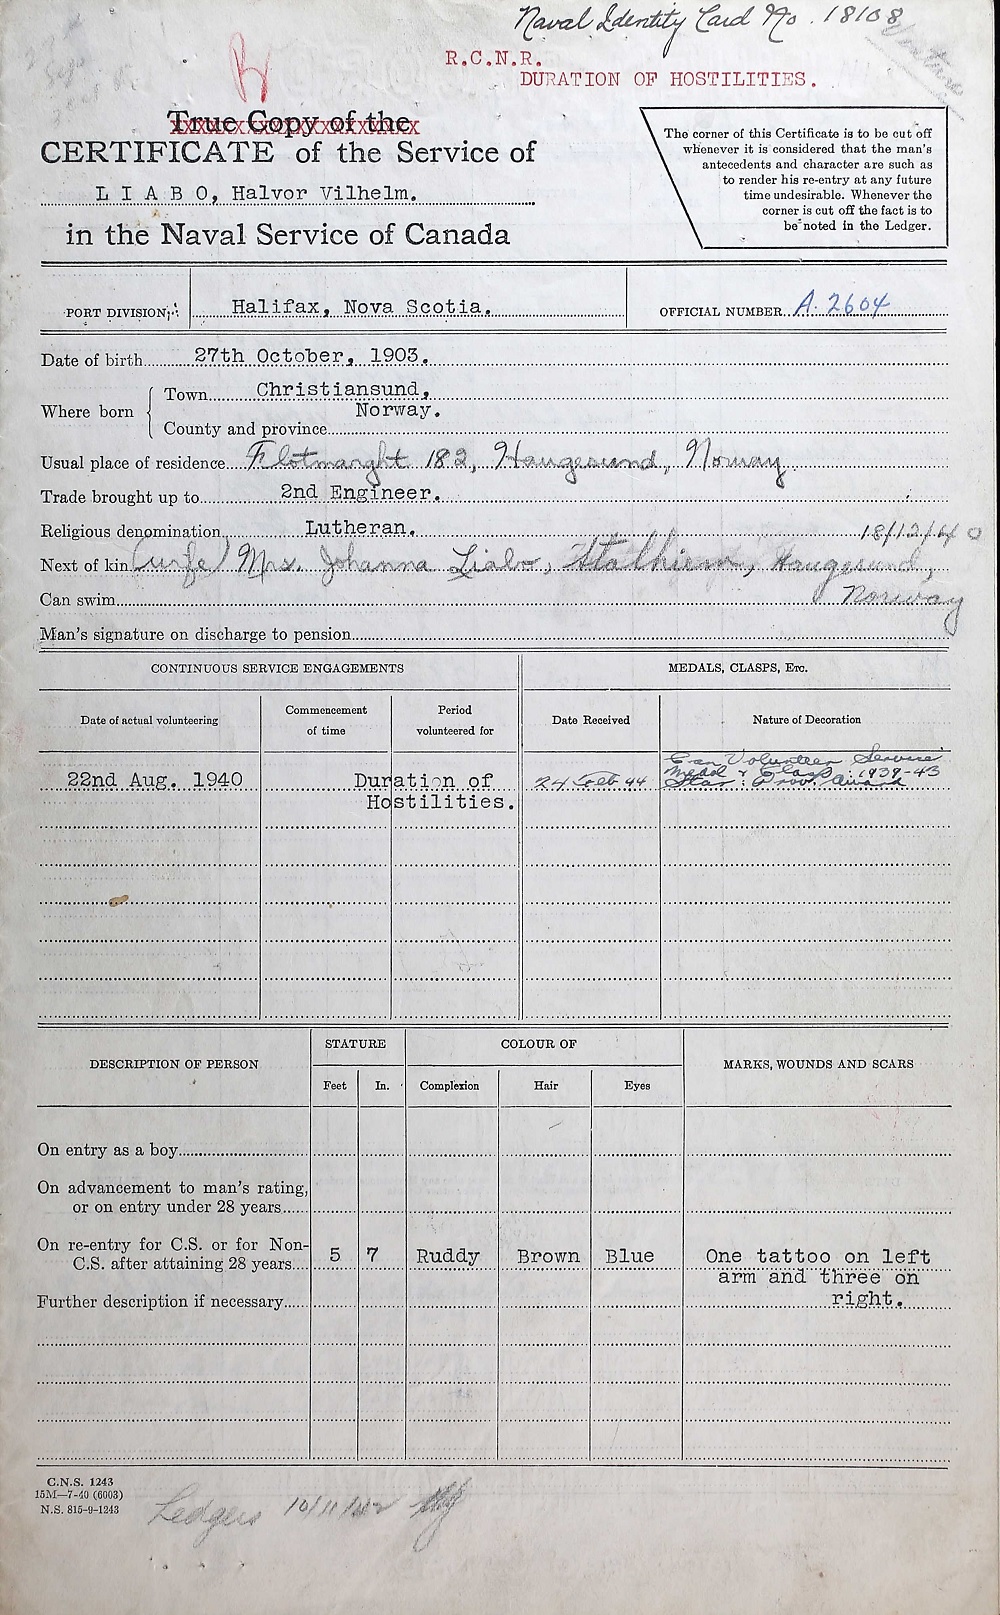 Naval Identity Card No. 18108
Venture
R.C.N.R.
DURATION OF HOSTILITIES.
B
True Copy of the
CERTIFICATE of the Service of
L I A B O, Halvor Vilhelm.
in the Naval Service of Canada
The corner of this Certificate is to be cut off
whenever it is considered that the man's
antecedents and character are such as
to render his re-entry at any future
time undesirable. Whenever the
corner is cut off the fact is to
be noted in the Ledger.
PORT DIVISION Halifax, Nova Scotia. OFFICIAL NUMBER A. 2604
Date of birth 27th October, 1903.
Where born
Town Christiansund,
Norway.
County and province
Usual place of residence Flotmarght 182, Haugesund, Norway.
Trade brought up to 2nd Engineer.
Religious denomination Lutheran. 18/12/40
Next of kin (wife) Mrs. Johanna Liabo, Stalhiem, Haugesund,
Norway
Can swim
Man's signature on discharge to pension
CONTINUOUS SERVICE ENGAGEMENTS MEDALS, CLASPS, Etc.
Date of actual volunteering Commencement of time Period volunteered for Date Received Nature of Decoration
22nd Aug. 1940 Duration of
Hostilities.
24 Feb 44 Can Volunteer Service
Medal & Clasp: 1939-43
Star: Prov. Award
DESCRIPTION OF PERSON STATURE COLOUR OF MARKS, WOUNDS AND SCARS
Feet In. Complexion Hair Eyes
On entry as a boy
On advancement to man's rating,
or on entry under 28 years
On re-entry for C.S. or for Non-
C.S. after attaining 28 years 5 7 Ruddy Brown Blue One tattoo on left
arm and three on
right.
Further description if necessary
C.N.S. 1243
15M—7-40 (6003)
N.S. 815-9-1243
Ledgers 10/11/42